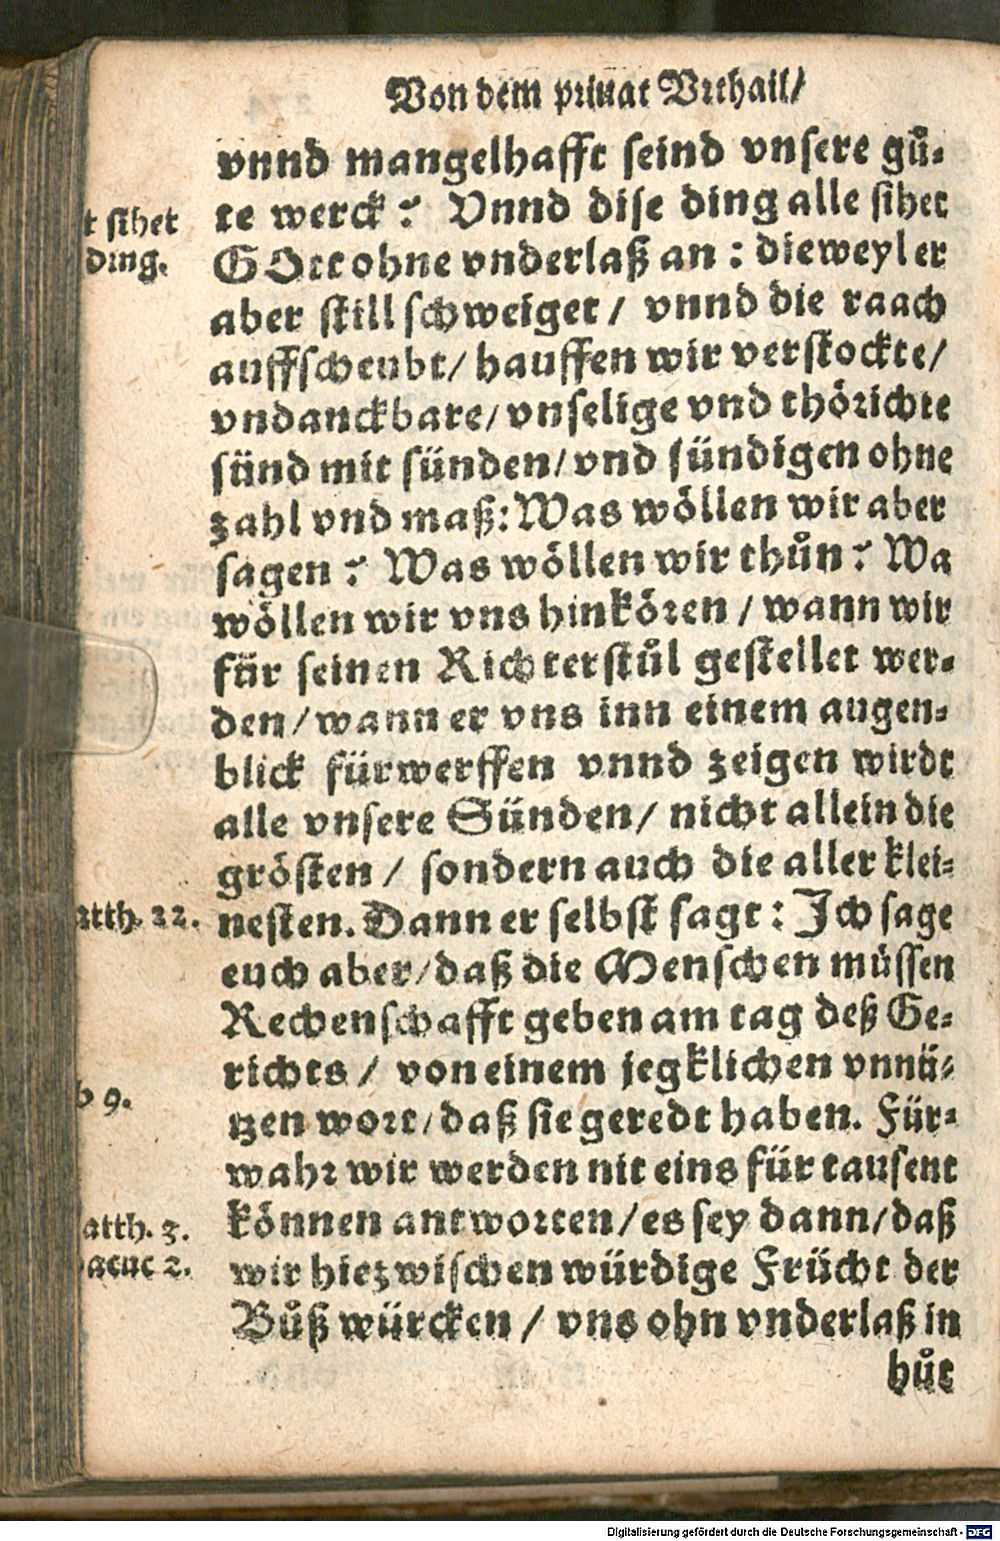 Von dem priuat Vrthail/
vnnd mangelhafft seind vnsere gů-
te werck? Vnnd dise ding alle sihet
GOtt ohne vnderlaß an: dieweyl er
aber still schweiget/ vnnd die raach
auffscheubt/ hauffen wir verstockte/
vndanckbare/ vnselige vnd thörichte
sünd mit sünden/ vnd sündigen ohne
zahl vnd maß: Was wöllen wir aber
sagen? Was wöllen wir thůn? Wa
wöllen wir vns hinkören/ wann wir
für seinen Richterstůl gestellet wer-
den/ wann er vns inn einem augen-
blick fürwerffen vnnd zeigen wirdt
alle vnsere Sünden/ nicht allein die
grösten/ sondern auch die aller klei-
nesten. Dann er selbst sagt: Ich sage
euch aber/ daß die Menschen müssen
Rechenschafft geben am tag deß Ge-
richts/ von einem jegklichen vnnü-
tzen wort/ daß sie geredt haben. Für-
wahr wir werden nit eins für tausent
können antworten/ es sey dann/ daß
wir hiezwischen würdige Frücht der
Bůß würcken/ vns ohn vnderlaß in
hůt
t sihet
ding.
atth. 22.
b 9.
atth. 3.
2.
Digitalisierung gefördert durch die Deutsche Forschungsgemeinschaft - DFG